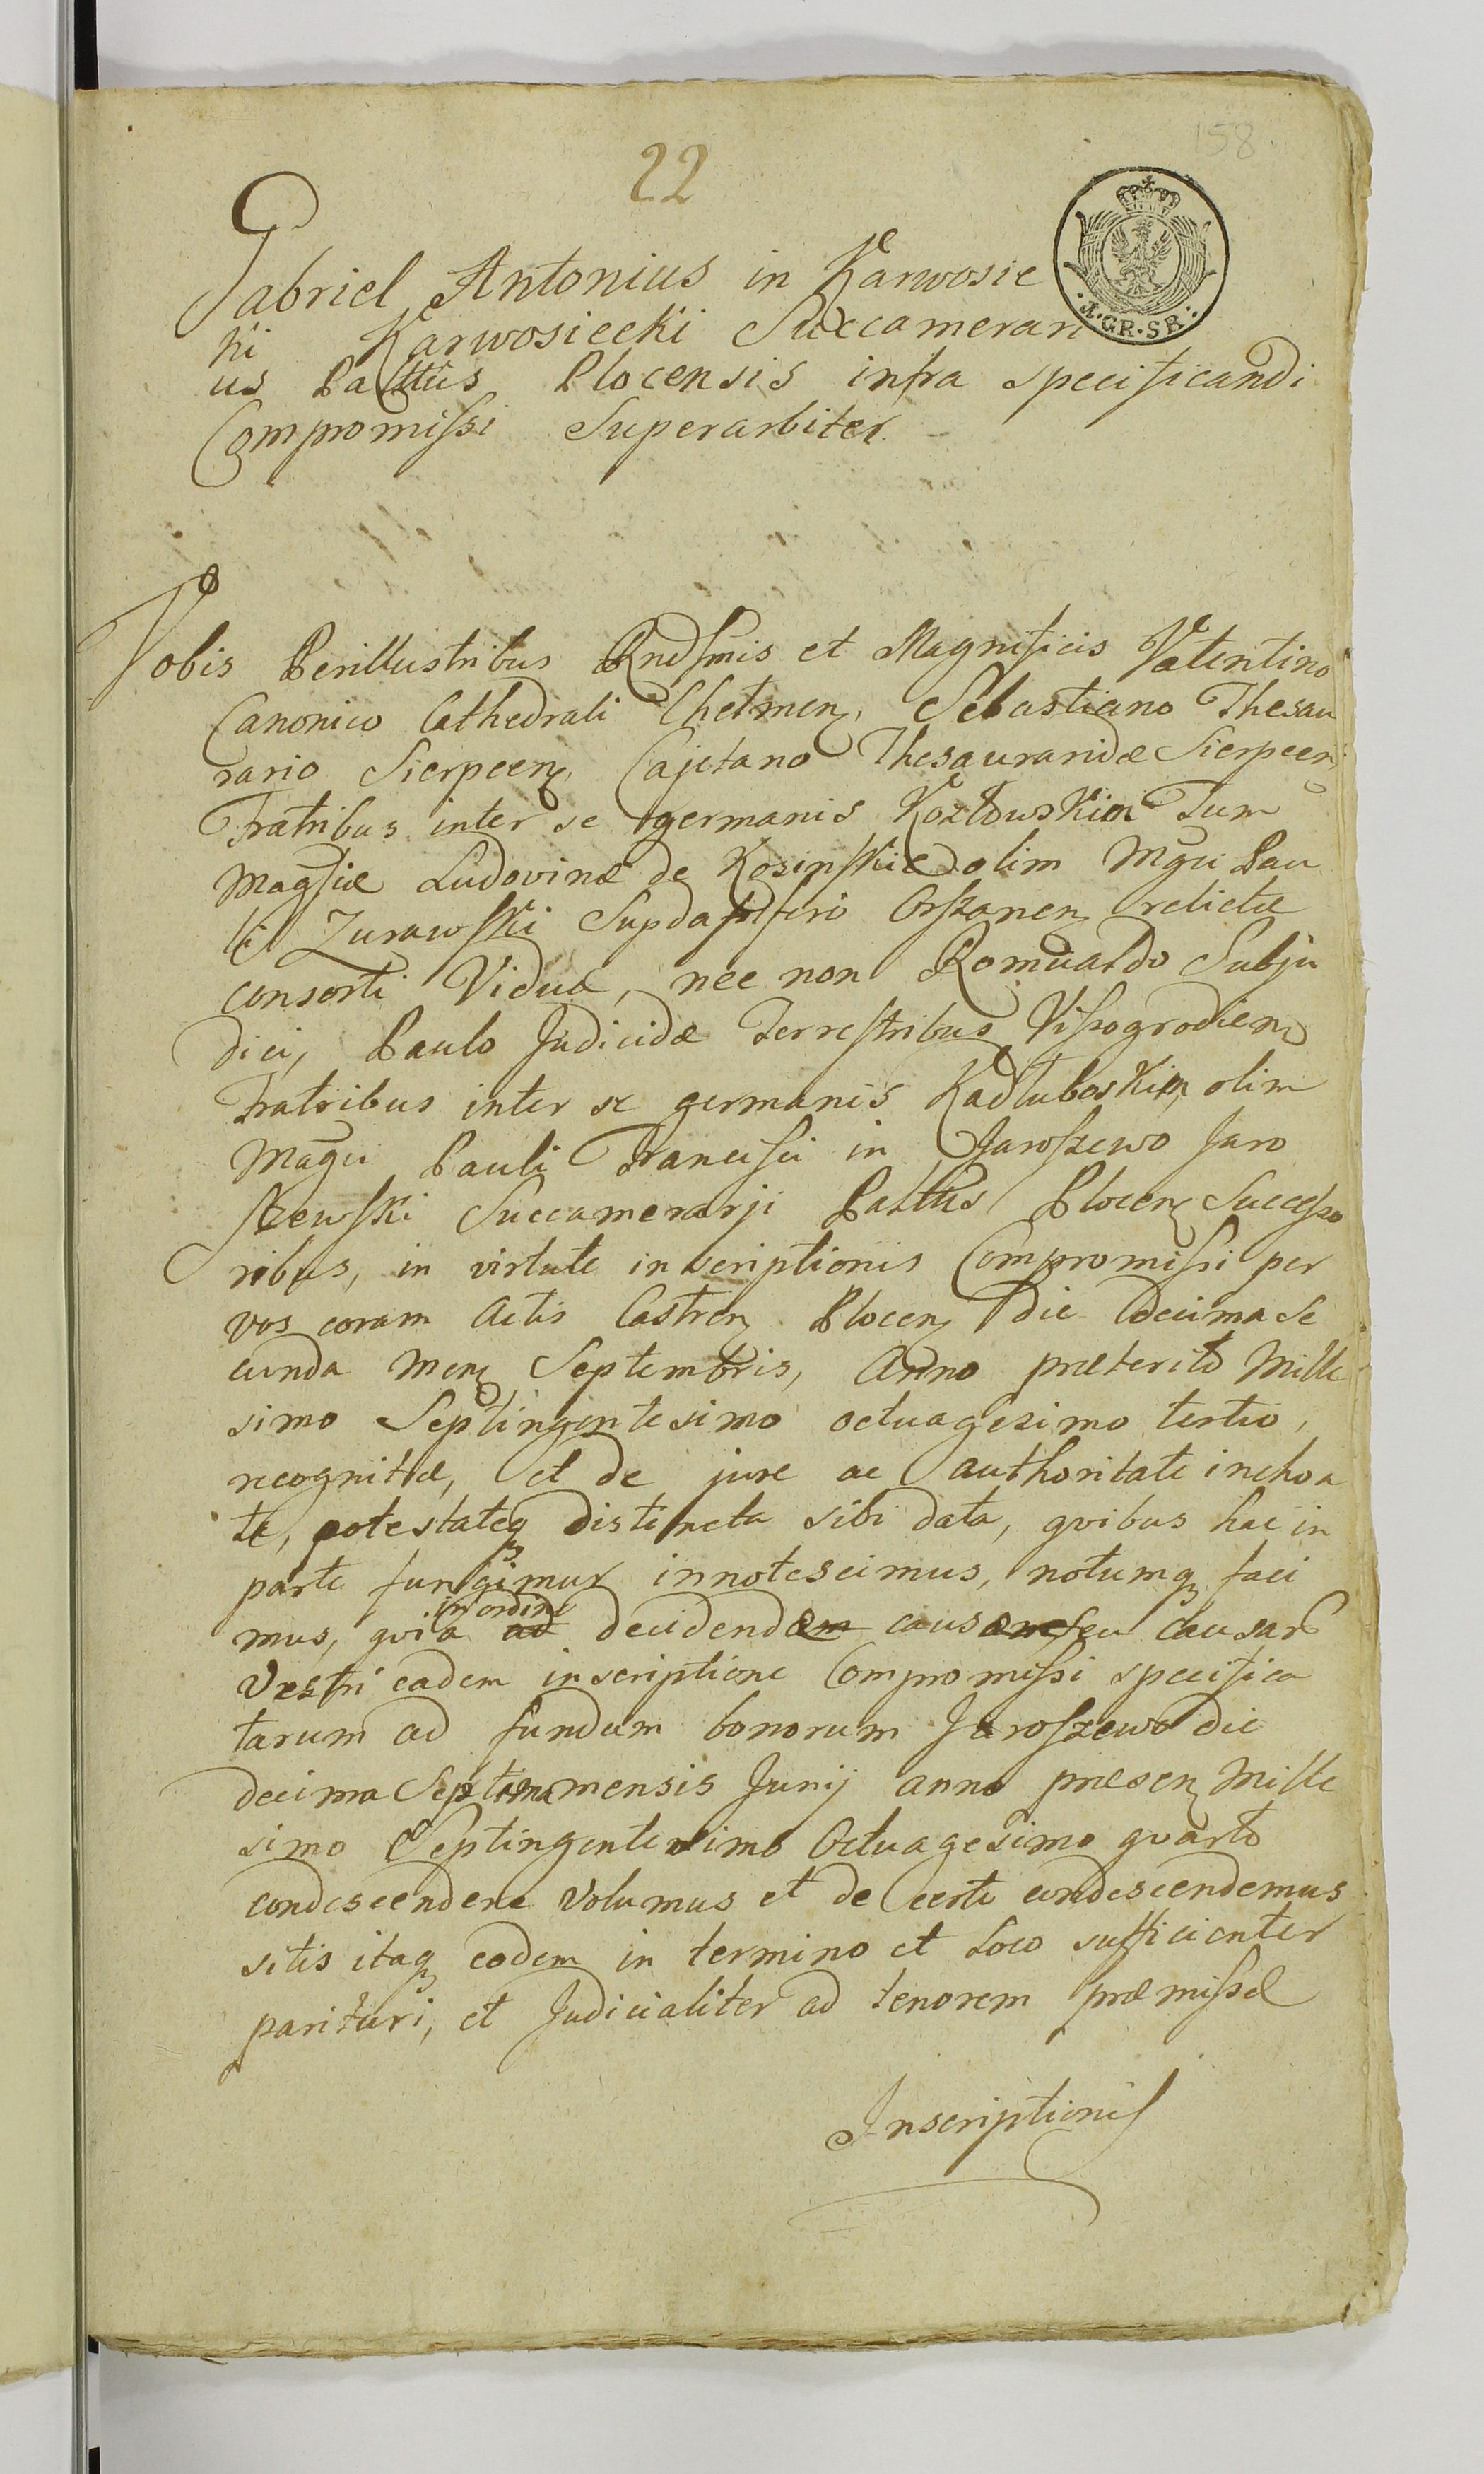 158
22
Gabriel Antonius in Karwosie
ki Karwosiecki Succamerari
4.GR.SR.
us Palttûs Plocensis infra specificandi
Compromissi Superarbiter.
Vobis Perillustribus Rndſmis et Magnificis Valentino
Canonico Cathedrali Chełmen, Sebastiano Thesau
rario Sierpcen, Cajetano Thesauraridæ Sierpcen,
Fratribus inter se germanis Kozłowskim Tum
Magſiæ Ludovinæ de Kosinſkie olim Mgci Pau
li Zurawſki Supdapiferi Orſzanen relictæ
consorti Viduæ, nec non Romualdo Subju
dici, Paulo Judicidæ Terreſtribus Viſzogrodien
Fratribus inter se germanis Kadłuboskim, olim
Magci Pauli Franciſci in Jaroſzewo Jaro
ſzewſki Succamerarji Palttûs Plocen Succeſso
ribus, in virtute inscriptionis Compromiſsi per
vos coram Actis Castren Plocen die decima se
cunda Men Septembris, Anno præterito Mille
simo Septingentesimo octuagesimo tertio,
recognitæ, et de jure ac authoritate inchoa
te, potestateq distincta sibi data, qvibus hac in
parte fungimur innotescimus, notumq faci
in ordine
mus, qvia ad decidendam causam seu causar
Vestri eadem inscriptione Compromiſsi specifica
tarum ad fundum bonorum Jaroſzewo die
decima Septima mensis Junij anno præsen Mille
simo Septingentesimo Octuagesimo qvarto
condescendere volumus et de certe condescendemus
sitis itaq eodem in termino et Loco sufficienter
parituri, et Judicialiter ad tenorem præmiſsæ
Inscriptionis